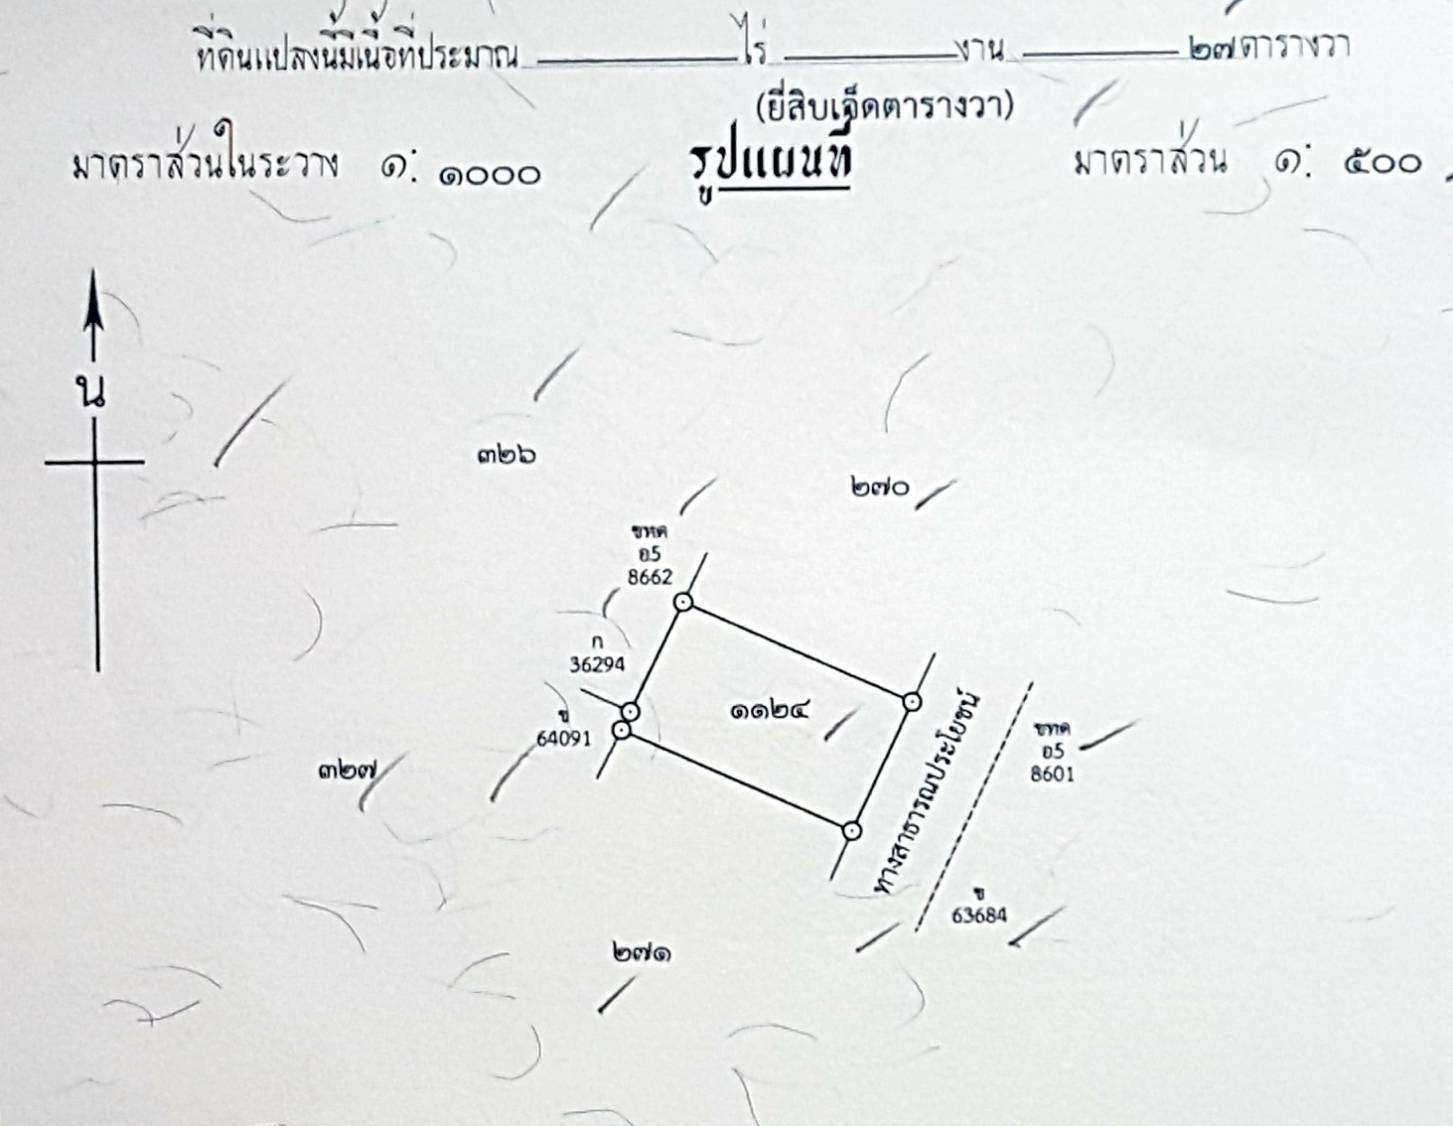 ที่ดินแปลงนี้มีเนื้อที่ประมาณ ไร่ งาน ๒๗ ตารางวา
(ยี่สิบเจ็ดตารางวา)
มาตราส่วนในระวาง ๑: ๑๐๐๐ รูปแผนที่ มาตราส่วน ๑: ๕๐๐
น
๓๒๖
๒๗๐
ขทด
อ5
8662
ก
36294
๑๑๒๔
ข
64091
ทางสาธารณประโยชน์
ขทด
อ5
8601
๓๒๗
ข
63684
๒๗๑